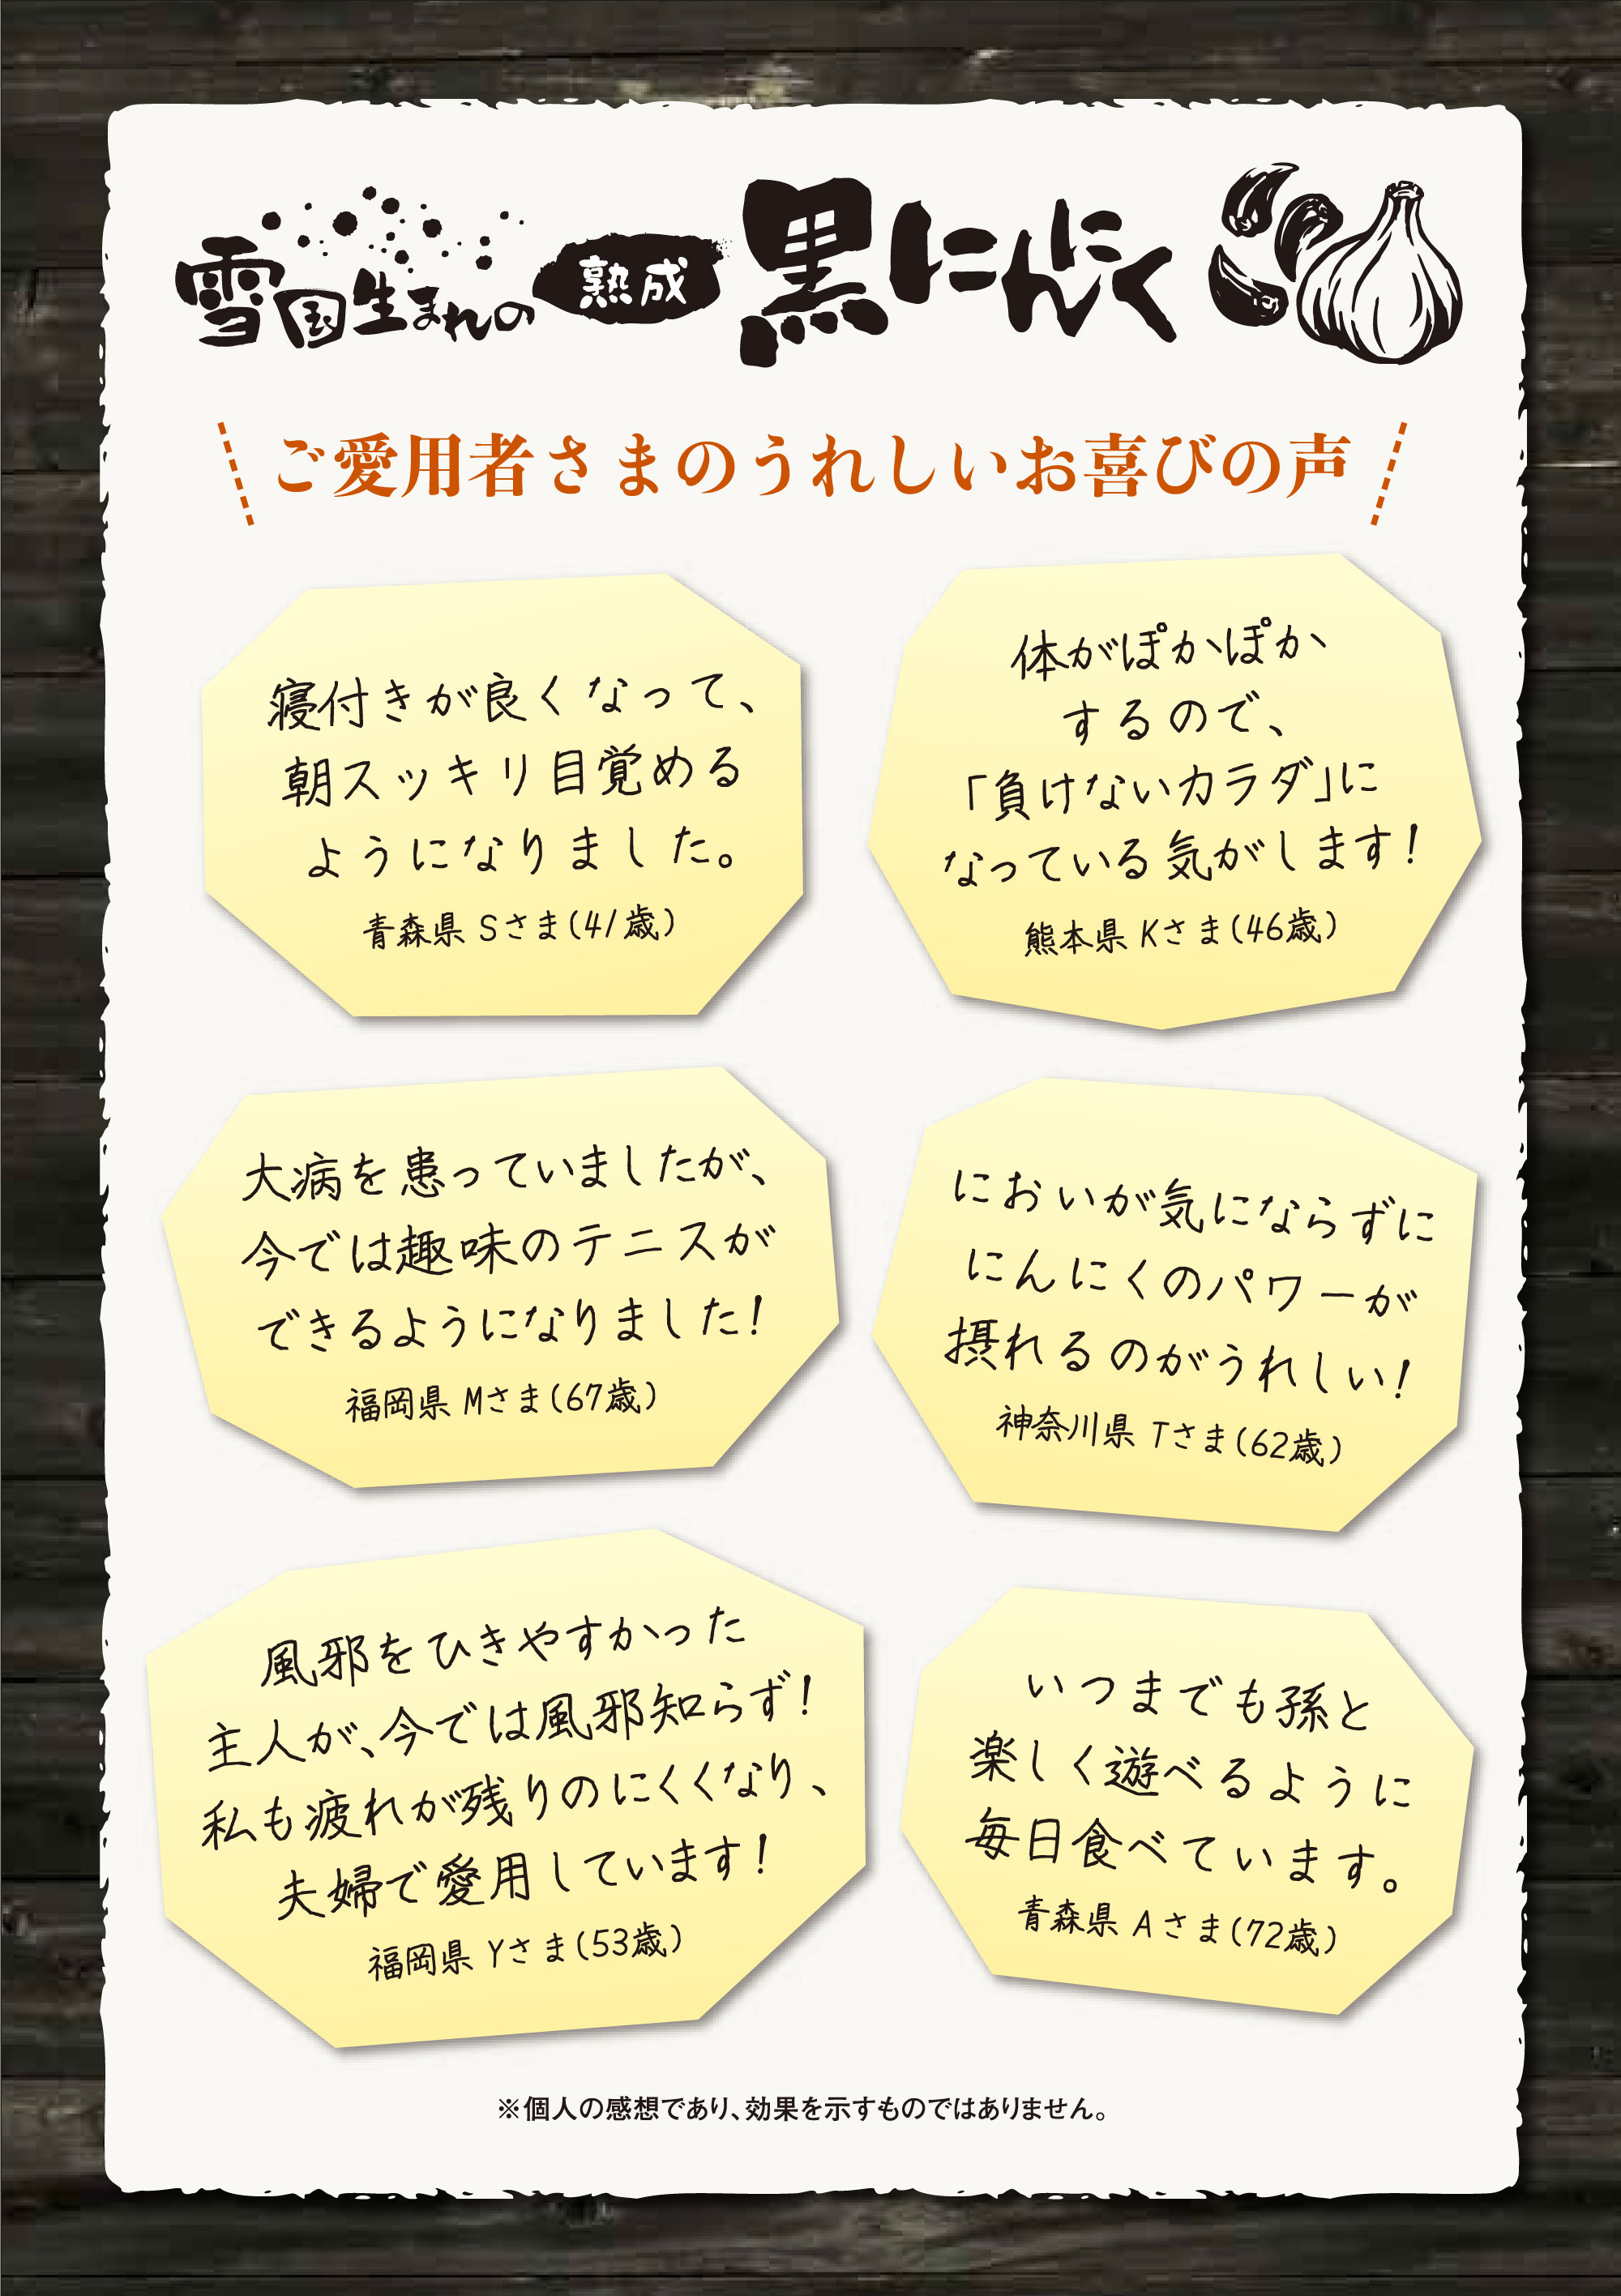 雪国生まれの 熟成 黒にんにく
ご愛用者さまのうれしいお喜びの声
寝付きが良くなって、
朝スッキリ目覚める
ようになりました。
青森県 Sさま(41歳)
体がぽかぽか
するので、
「負けないカラダ」に
なっている気がします!
熊本県 Kさま(46歳)
大病を患っていましたが、
今では趣味のテニスが
できるようになりました!
福岡県 Mさま(67歳)
においが気にならずに
にんにくのパワーが
摂れるのがうれしい!
神奈川県 Tさま(62歳)
風邪をひきやすかった
主人が、今では風邪知らず!
私も疲れが残りのにくくなり、
夫婦で愛用しています!
福岡県 Yさま(53歳)
いつまでも孫と
楽しく遊べるように
毎日食べています。
青森県 Aさま(72歳)
※個人の感想であり、効果を示すものではありません。